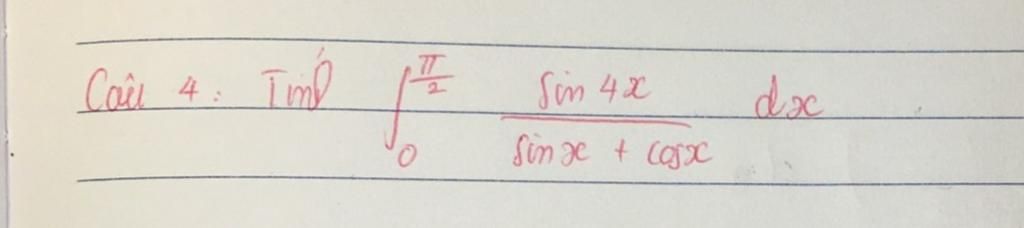 Câu 4: Tính ∫₀^{π/2} \frac{sin 4x}{sin x + cos x} dx